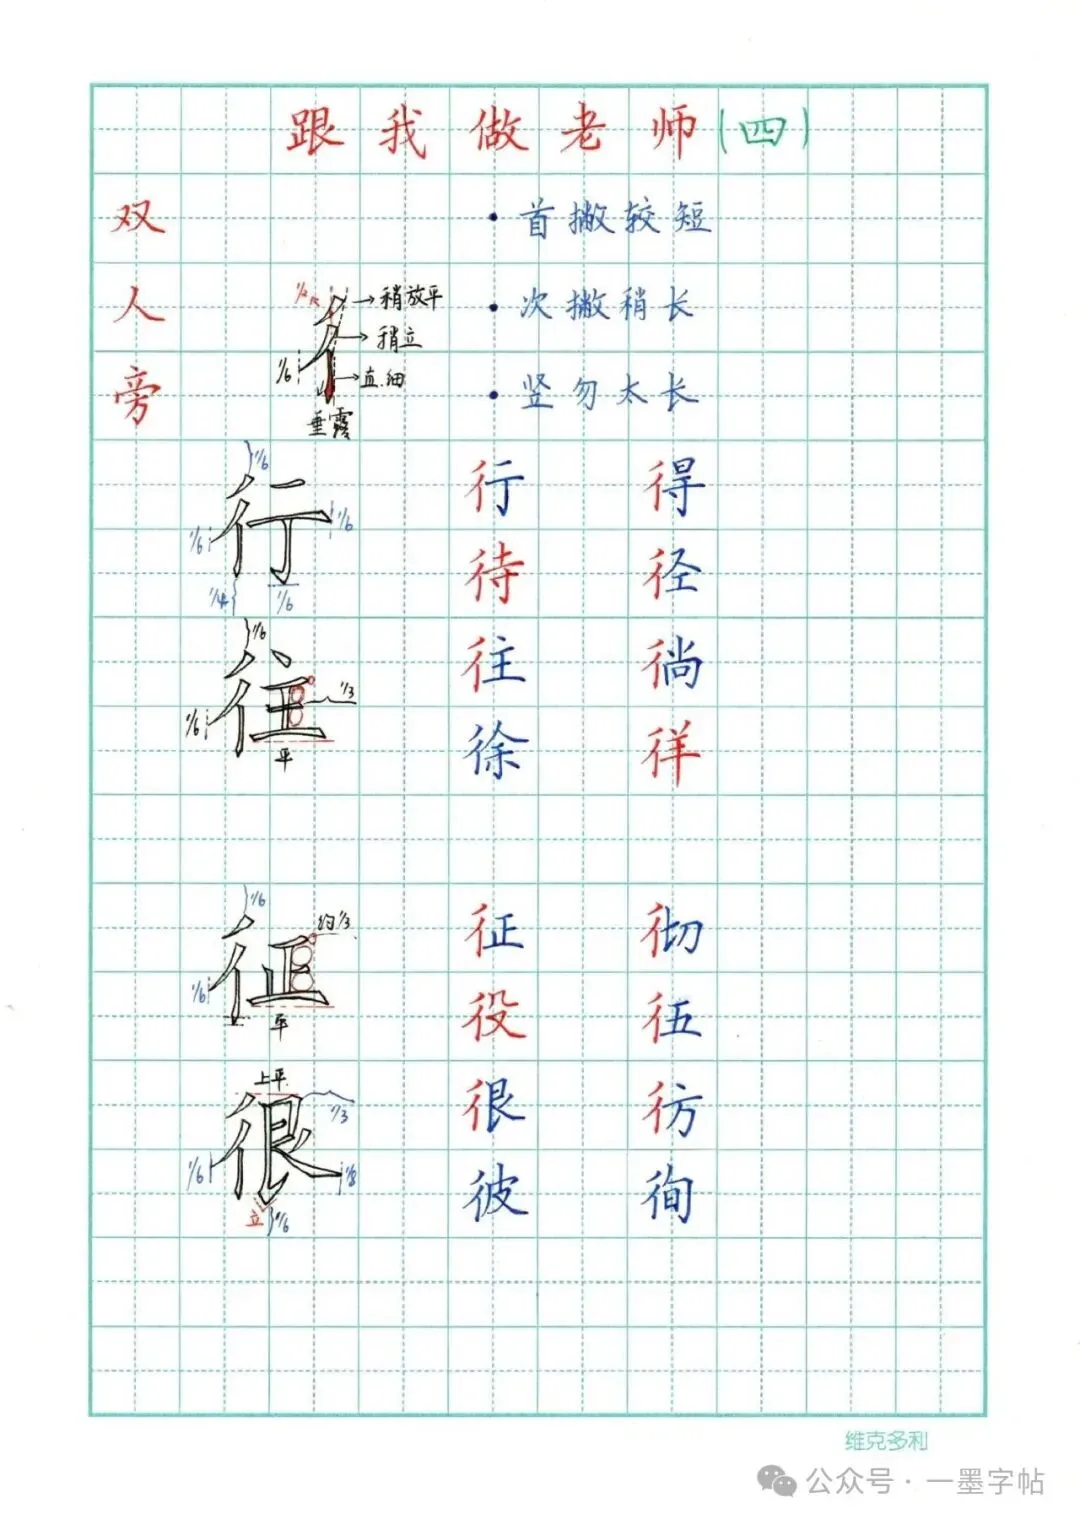 跟我做老师(四)
双人旁
·首撇较短
·次撇稍长
·竖勿太长
1/2
稍放平
稍立
直.细
1/6
垂露
行 得
待 径
往 徜
徐 徉
1/6
1/6
1/6
1/4
1/6
1/6
1/3
1/6
平
征 彻
役 伍
很 彷
彼 徇
1/6
约1/3
1/6
平
上平
1/3
1/6
1/8
立
1/6
维克多利
公众号·一墨字帖